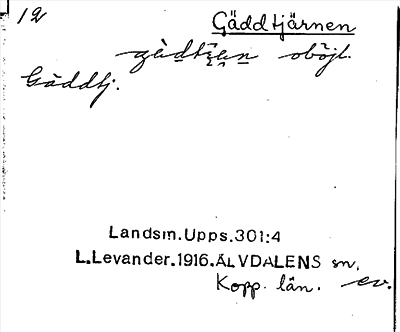 12
Gäddtjärnen
oböjl.
Gäddtj.
Landsm.Upps.301:4
L.Levander.1916.ÄLVDALENS sn.
Kopp. län. ev.